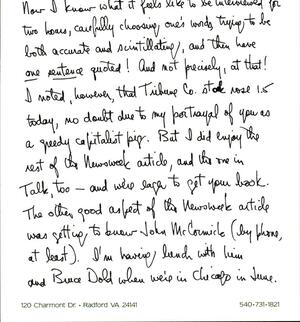 Now I know what it feels like to be interviewed for
two hours, carefully choosing one's words trying to be
both accurate and scintillating, and then have
one sentence quoted! And not precisely, at that!
I noted, however, that Tribune Co. stock rose 1.5
today, no doubt due to my portrayal of you as
a greedy capitalist pig. But I did enjoy the
rest of the Newsweek article, and the one in
Talk, too — and we're eager to get your book.
The other good aspect of the Newsweek article
was getting to know John McCormick (by phone,
at least). I'm having lunch with him
and Bruce Dold when we're in Chicago in June.
120 Charmont Dr. • Radford VA 24141 540•731•1821